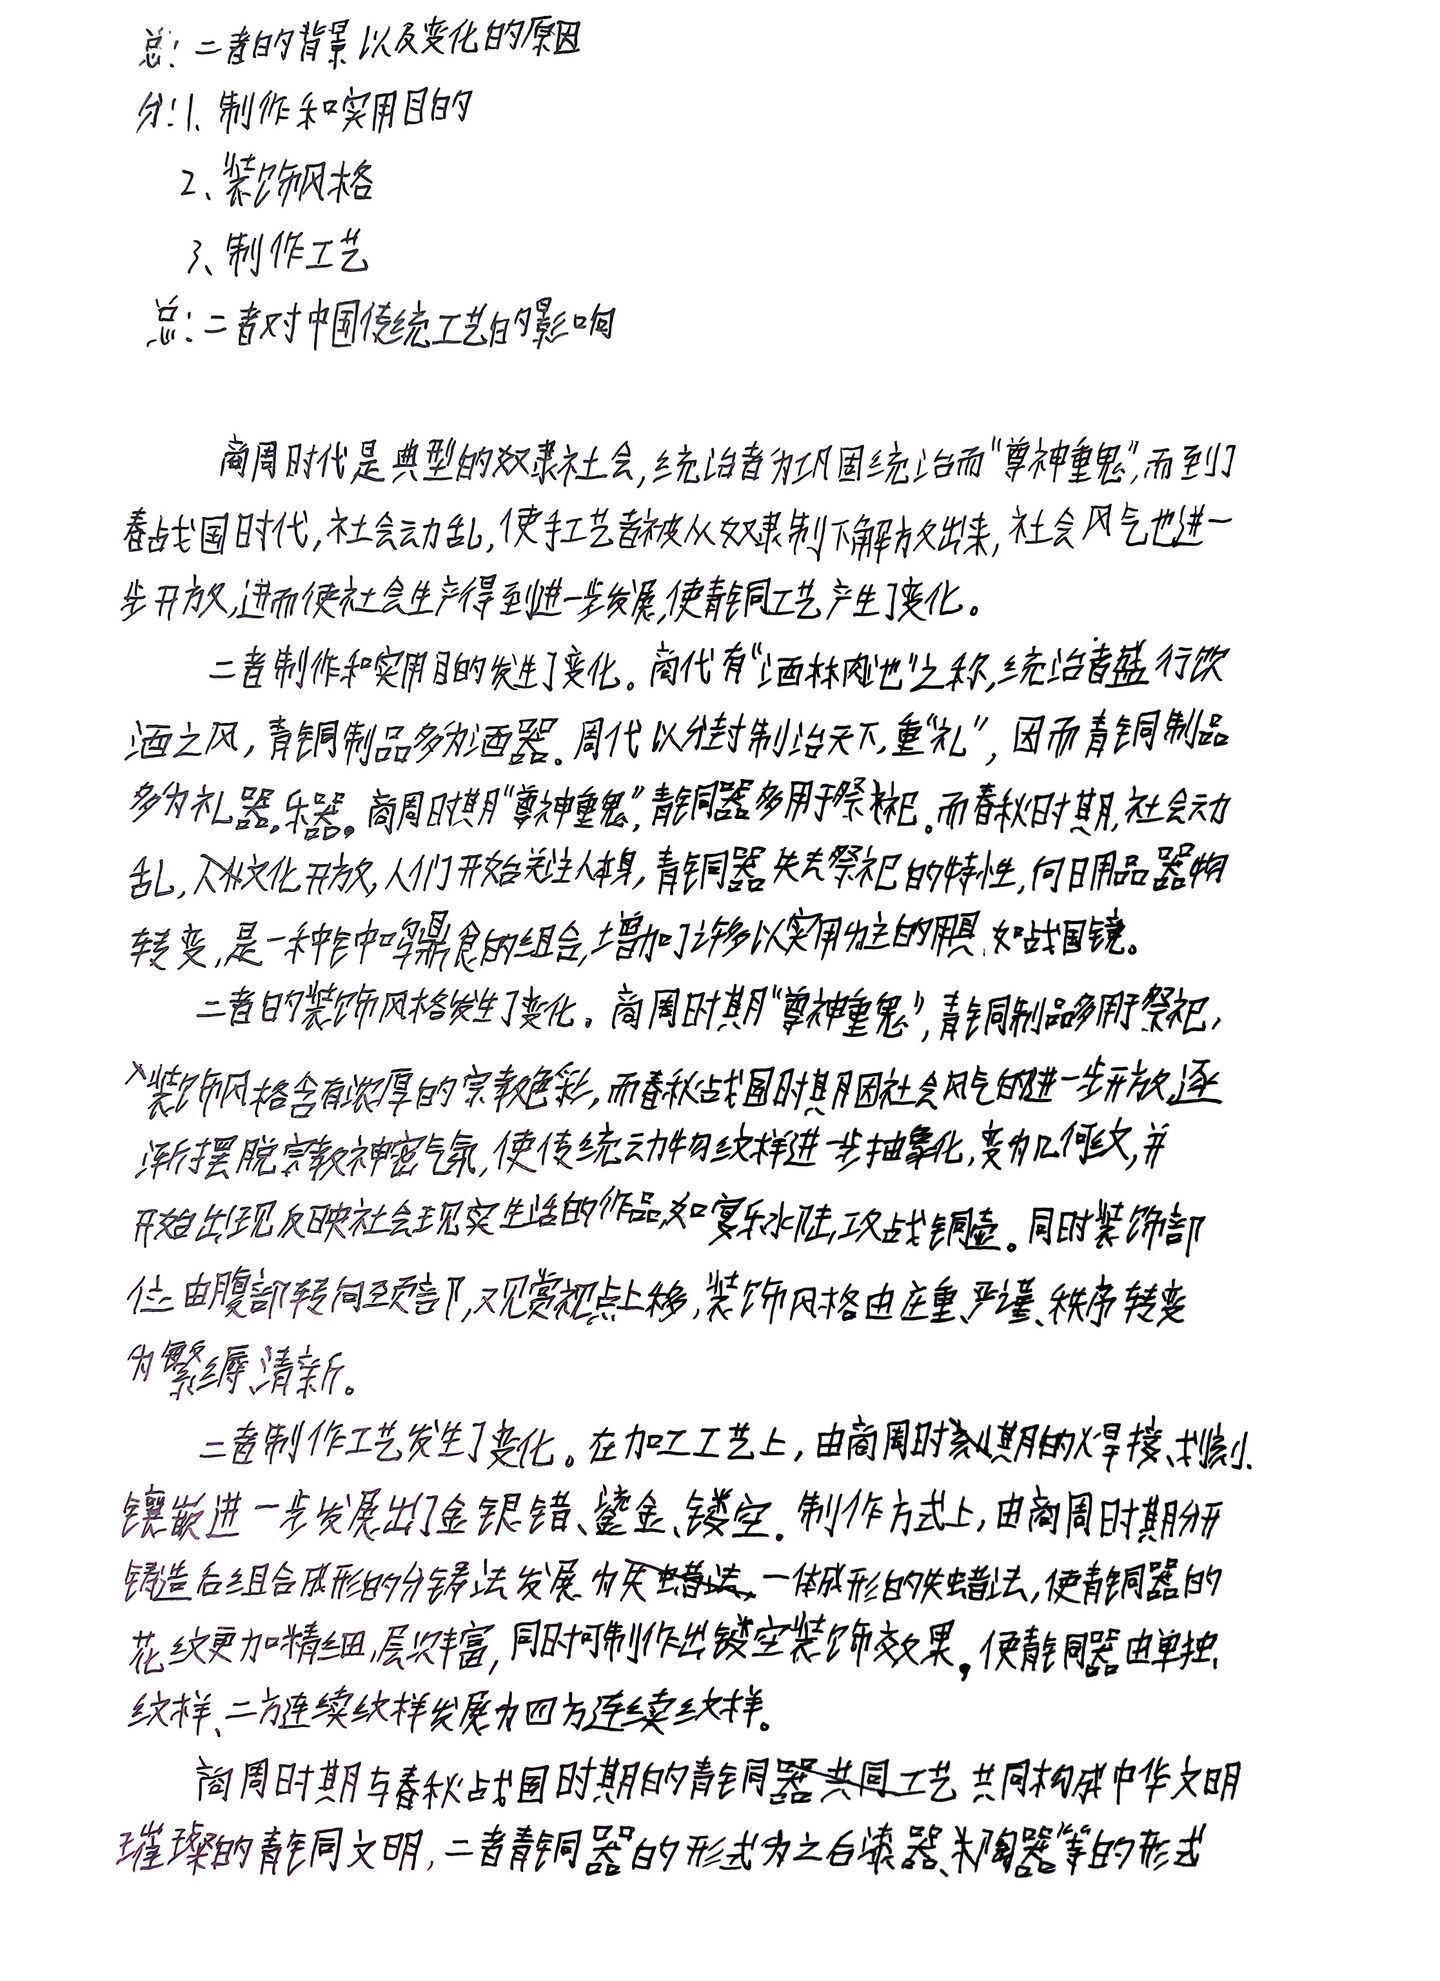 总：二者的背景以及变化的原因
分：1、制作和实用目的
2、装饰风格
3、制作工艺
总：二者对中国传统工艺的影响
商周时代是典型的奴隶社会，统治者为巩固统治而“尊神重鬼”，而到了
春战国时代，社会动乱，使手工艺者被从奴隶制下解放出来，社会风气也进一
步开放，进而使社会生产得到进一步发展，使青铜工艺产生了变化。
二者制作和实用目的发生了变化。商代有“酒林肉池”之称，统治者盛行饮
酒之风，青铜制品多为酒器。周代以分封制治天下，重“礼”，因而青铜制品
多为礼器。乐器。商周时期“尊神重鬼”，青铜器多用于祭祀。而春秋时期，社会动
乱，文化开放，人们开始关注人本身，青铜器失去祭祀的特性，向日用品器物
转变，是一种钟鸣鼎食的组合，增加了许多以实用为主的用具，如战国镜。
二者的装饰风格发生了变化。商周时期“尊神重鬼”，青铜制品多用于祭祀，
装饰风格含有浓厚的宗教色彩，而春秋战国时期因社会风气的进一步开放，逐
渐摆脱宗教神密气氛，使传统动物纹样进一步抽象化，变为几何纹，并
开始出现反映社会现实生活的作品，如宴乐水陆，攻战铜壶。同时装饰部
位由腹部转向至顶部，观赏视点上移，装饰风格由庄重、严谨、秩序转变
为繁缛、清新。
二者制作工艺发生了变化。在加工工艺上，由商周时期的焊接、刻、
镶嵌进一步发展出了金银错、鎏金、镂空。制作方式上，由商周时期分开
铸造后组合成形的分铸法发展为失蜡法，一体成形的失蜡法，使青铜器的
花纹更加精细，层次丰富，同时可制作出镂空装饰效果，使青铜器由单独
纹样、二方连续纹样发展为四方连续纹样。
商周时期与春秋战国时期的青铜器共同工艺共同构成中华文明
璀璨的青铜文明，二者青铜器的形式为之后漆器、陶器等的形式